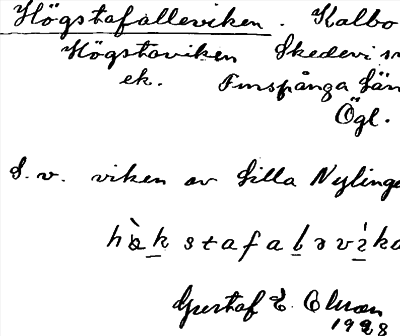 Högstafalleviken. Kalbo
Högstaviken Skedevi sn
ek. Finspånga län
Ögl.
S. v. viken av Lilla Nylinge
Gustaf E. Olsson
1928